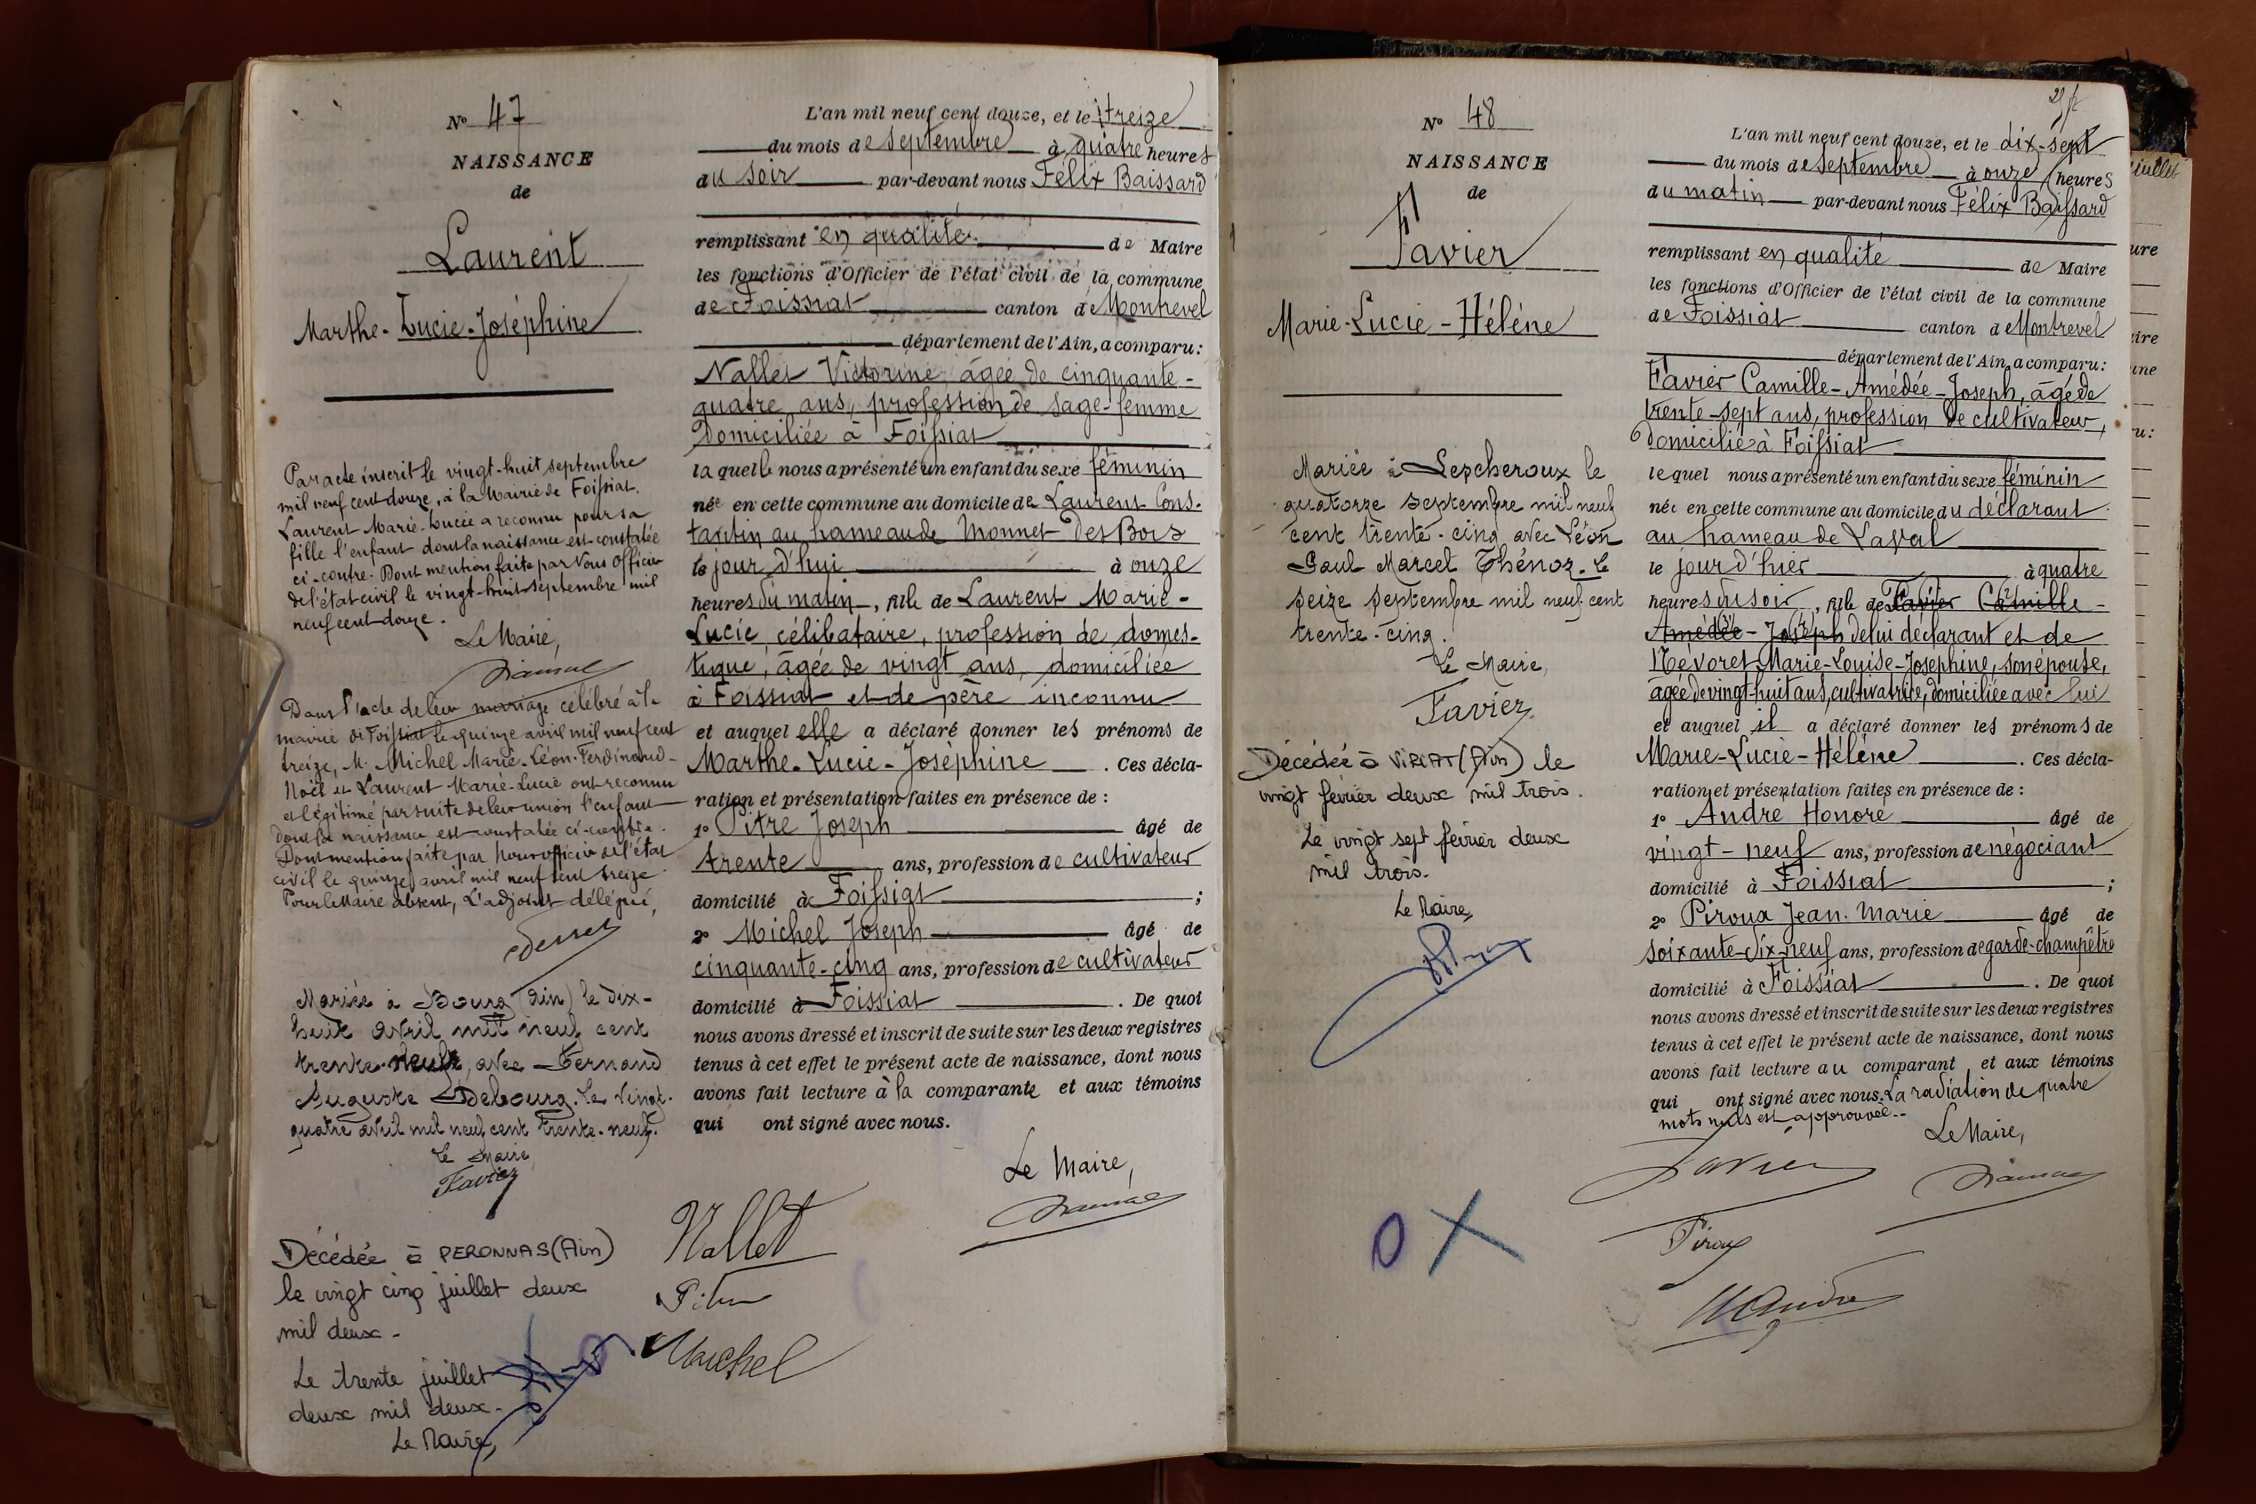 N° 47
NAISSANCE
de
Laurent
Marthe-Lucie-Joséphine
Par acte inscrit le vingt-huit septembre
mil neuf cent douze, à la Mairie de Foissiat,
Laurent Marie-Lucie a reconnu pour sa
fille l'enfant dont la naissance est constatée
ci-contre. Dont mention faite par Nous Officier
de l'état civil le vingt-huit septembre mil
neuf cent douze.
Le Maire,
Dans l'acte de leur mariage célébré à la
mairie de Foissiat le quinze avril mil neuf cent
treize, M. Michel Marie-Léon-Ferdinand-
Noël et Laurent Marie-Lucie ont reconnu
et légitimé par suite de leur union l'enfant
dont la naissance est constatée ci-contre.
Dont mention faite par Nous officier de l'état
civil le quinze avril mil neuf cent treize.
Pour le Maire absent, L'adjoint délégué,
Mariée à Bourg (Ain) le dix-
huit avril mil neuf cent
trente-neuf, avec Fernand
Auguste Debourg. Le vingt-
quatre avril mil neuf cent trente-neuf.
Le Maire
Favier
Décédée à PERONNAS (Ain)
le vingt cinq juillet deux
mil deux-
Le trente juillet
deux mil deux-
Le Maire,
L'an mil neuf cent douze, et le treize
du mois de septembre à quatre heures
du soir par-devant nous Félix Baissard
remplissant en qualité de Maire
les fonctions d'Officier de l'état civil de la commune
de Foissiat canton de Montrevel
département de l'Ain, a comparu:
Nallet Victorine, âgée de cinquante-
quatre ans, profession de sage-femme
Domiciliée à Foissiat
laquelle nous a présenté un enfant du sexe féminin
née en cette commune au domicile de Laurent Cons-
tantin au hameau de Monnet des Bois
le jour d'hui à onze
heures du matin, fille de Laurent Marie-
Lucie, célibataire, profession de domes-
tique, âgée de vingt ans, domiciliée
à Foissiat et de père inconnu
et auquel elle a déclaré donner les prénoms de
Marthe-Lucie-Joséphine. Ces décla-
ration et présentation faites en présence de :
1° Pitre Joseph âgé de
trente ans, profession de cultivateur
domicilié à Foissiat ;
2° Michel Joseph âgé de
cinquante-cinq ans, profession de cultivateur
domicilié à Foissiat. De quoi
nous avons dressé et inscrit de suite sur les deux registres
tenus à cet effet le présent acte de naissance, dont nous
avons fait lecture à la comparante et aux témoins
qui ont signé avec nous.
Le Maire,
Nallet
Pitre
Michel
N° 48
NAISSANCE
de
Favier
Marie-Lucie-Hélène
Mariée à Lescheroux le
quatorze septembre mil neuf
cent trente-cinq avec Léon
Paul Marcel Thénoz. Le
seize septembre mil neuf cent
trente-cinq.
Le Maire,
Favier
Décédée à VIRIAT (Ain) le
vingt février deux mil trois.
Le vingt sept février deux
mil trois.
Le Maire,
O X
L'an mil neuf cent douze, et le dix-sept
du mois de septembre à onze heures
du matin par-devant nous Félix Baissard
remplissant en qualité de Maire
les fonctions d'Officier de l'état civil de la commune
de Foissiat canton de Montrevel
département de l'Ain, a comparu:
Favier Camille-Amédée-Joseph, âgé de
trente-sept ans, profession de cultivateur,
domicilié à Foissiat
lequel nous a présenté un enfant du sexe féminin
née en cette commune au domicile du déclarant
au hameau de Laval
le jour d'hier à quatre
heures du soir, fille de Favier Camille-
Amédée-Joseph de lui déclarant et de
Névoret Marie-Louise-Joséphine, son épouse,
âgée de vingt-huit ans, cultivatrice, domiciliée avec lui
et auquel il a déclaré donner les prénoms de
Marie-Lucie-Hélène. Ces décla-
ration et présentation faites en présence de :
1° André Honoré âgé de
vingt-neuf ans, profession de négociant
domicilié à Foissiat ;
2° Piroux Jean-Marie âgé de
soixante-dix-neuf ans, profession de garde-champêtre
domicilié à Foissiat. De quoi
nous avons dressé et inscrit de suite sur les deux registres
tenus à cet effet le présent acte de naissance, dont nous
avons fait lecture au comparant et aux témoins
qui ont signé avec nous. La radiation de quatre
mots nuls est approuvée.
Le Maire,
Favier
Piroux
André
juillet